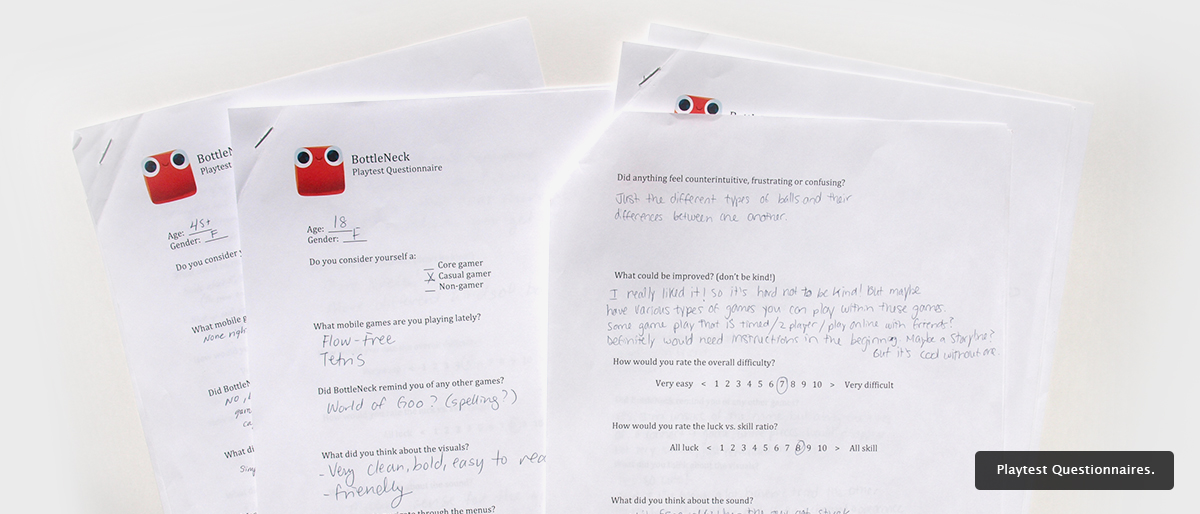 BottleN
Playtest
Age: 45+
Gender: F
Do you consider y
What mobile g
None righ
Did BottleN
NO,
gam
ca
What di
Simp
BottleNeck
Playtest Questionnaire
Age: 18
Gender: F
Do you consider yourself a:
__ Core gamer
X Casual gamer
__ Non-gamer
What mobile games are you playing lately?
Flow-Free
Tetris
Did BottleNeck remind you of any other games?
World of Goo? (spelling?)
What did you think about the visuals?
- Very clean, bold, easy to rea
- friendly
through the menus?
Did anything feel counterintuitive, frustrating or confusing?
Just the different types of balls and their
differences between one another.
What could be improved? (don't be kind!)
I really liked it! So it's hard not to be kind! But maybe
have various types of games you can play within these games.
Some game play that is timed/2 player/play online with friends?
Definitely would need instructions in the beginning. Maybe a storyline?
But it's cool without one.
How would you rate the overall difficulty?
Very easy < 1 2 3 4 5 6 7 8 9 10 > Very difficult
How would you rate the luck vs. skill ratio?
All luck < 1 2 3 4 5 6 7 8 9 10 > All skill
What did you think about the sound?
Playtest Questionnaires.